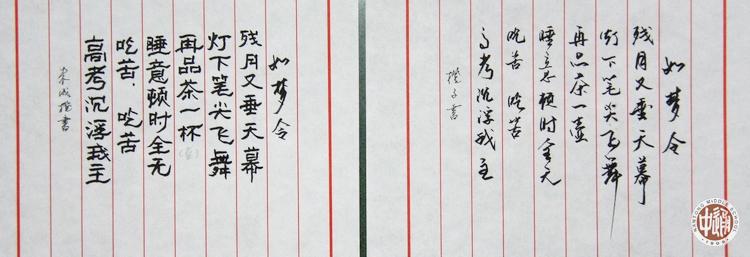 如梦令
残月又垂天幕
灯下笔尖飞舞
再品茶一杯
(壶)
睡意顿时全无
吃苦.吃苦
高考沉浮我主
书
如梦令
残月又垂天幕
灯下笔尖飞舞
再品茶一壶
睡意顿时全无
吃苦 吃苦
高考沉浮我主
子书
NANTONG MIDDLE SCHOOL
1909